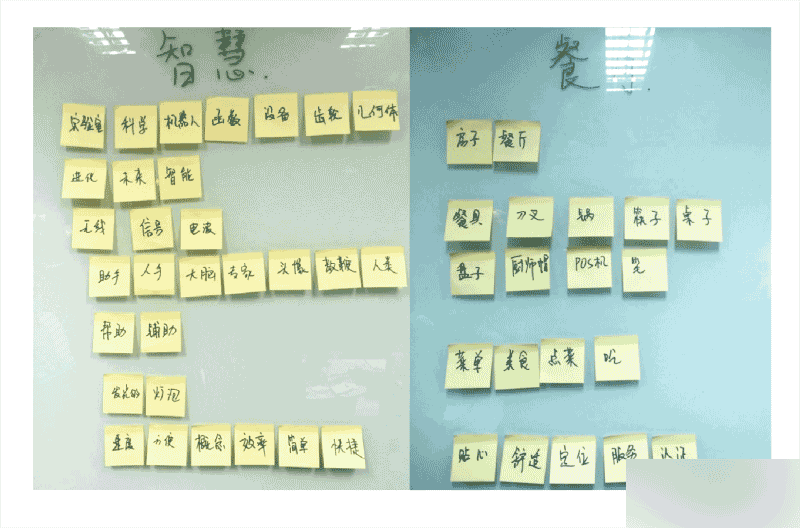 智慧.
实验室 科学 机器人 函数 设备 齿轮 几何体
进化 未来 智能
无线 信号 电波
助手 人手 大脑 专家 头像 人类
帮助 辅助
发光的 灯泡
速度 方便 概念 效率 简单 快捷
餐
房子 餐厅
餐具 刀叉 锅 筷子 桌子
盘子 厨师帽 POS机
菜单 美食 点菜 吃
贴心 舒适 定位 服务